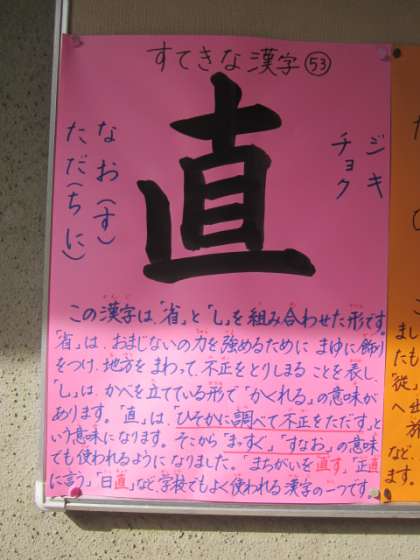 すてきな漢字㊼
直
ジキ
チョク
なお(す)
ただ(ちに)
この漢字は、「省」と「乚」を組み合わせた形です。
「省」は、おまじないの力を強めるために まゆに飾り
をつけ、地方を まわって、不正をとりしまる ことを表し、
「乚」は、かべを立てている形で「かくれる」の意味が
あります。「直」は、「ひそかに調べて不正をただす」と
いう意味になります。そこから「まっすぐ」「すなお」の意味
でも使われるようになりました。「まちがいを直す」、「正直
に言う」、「日直」など学校でもよく使われる漢字の一つです。